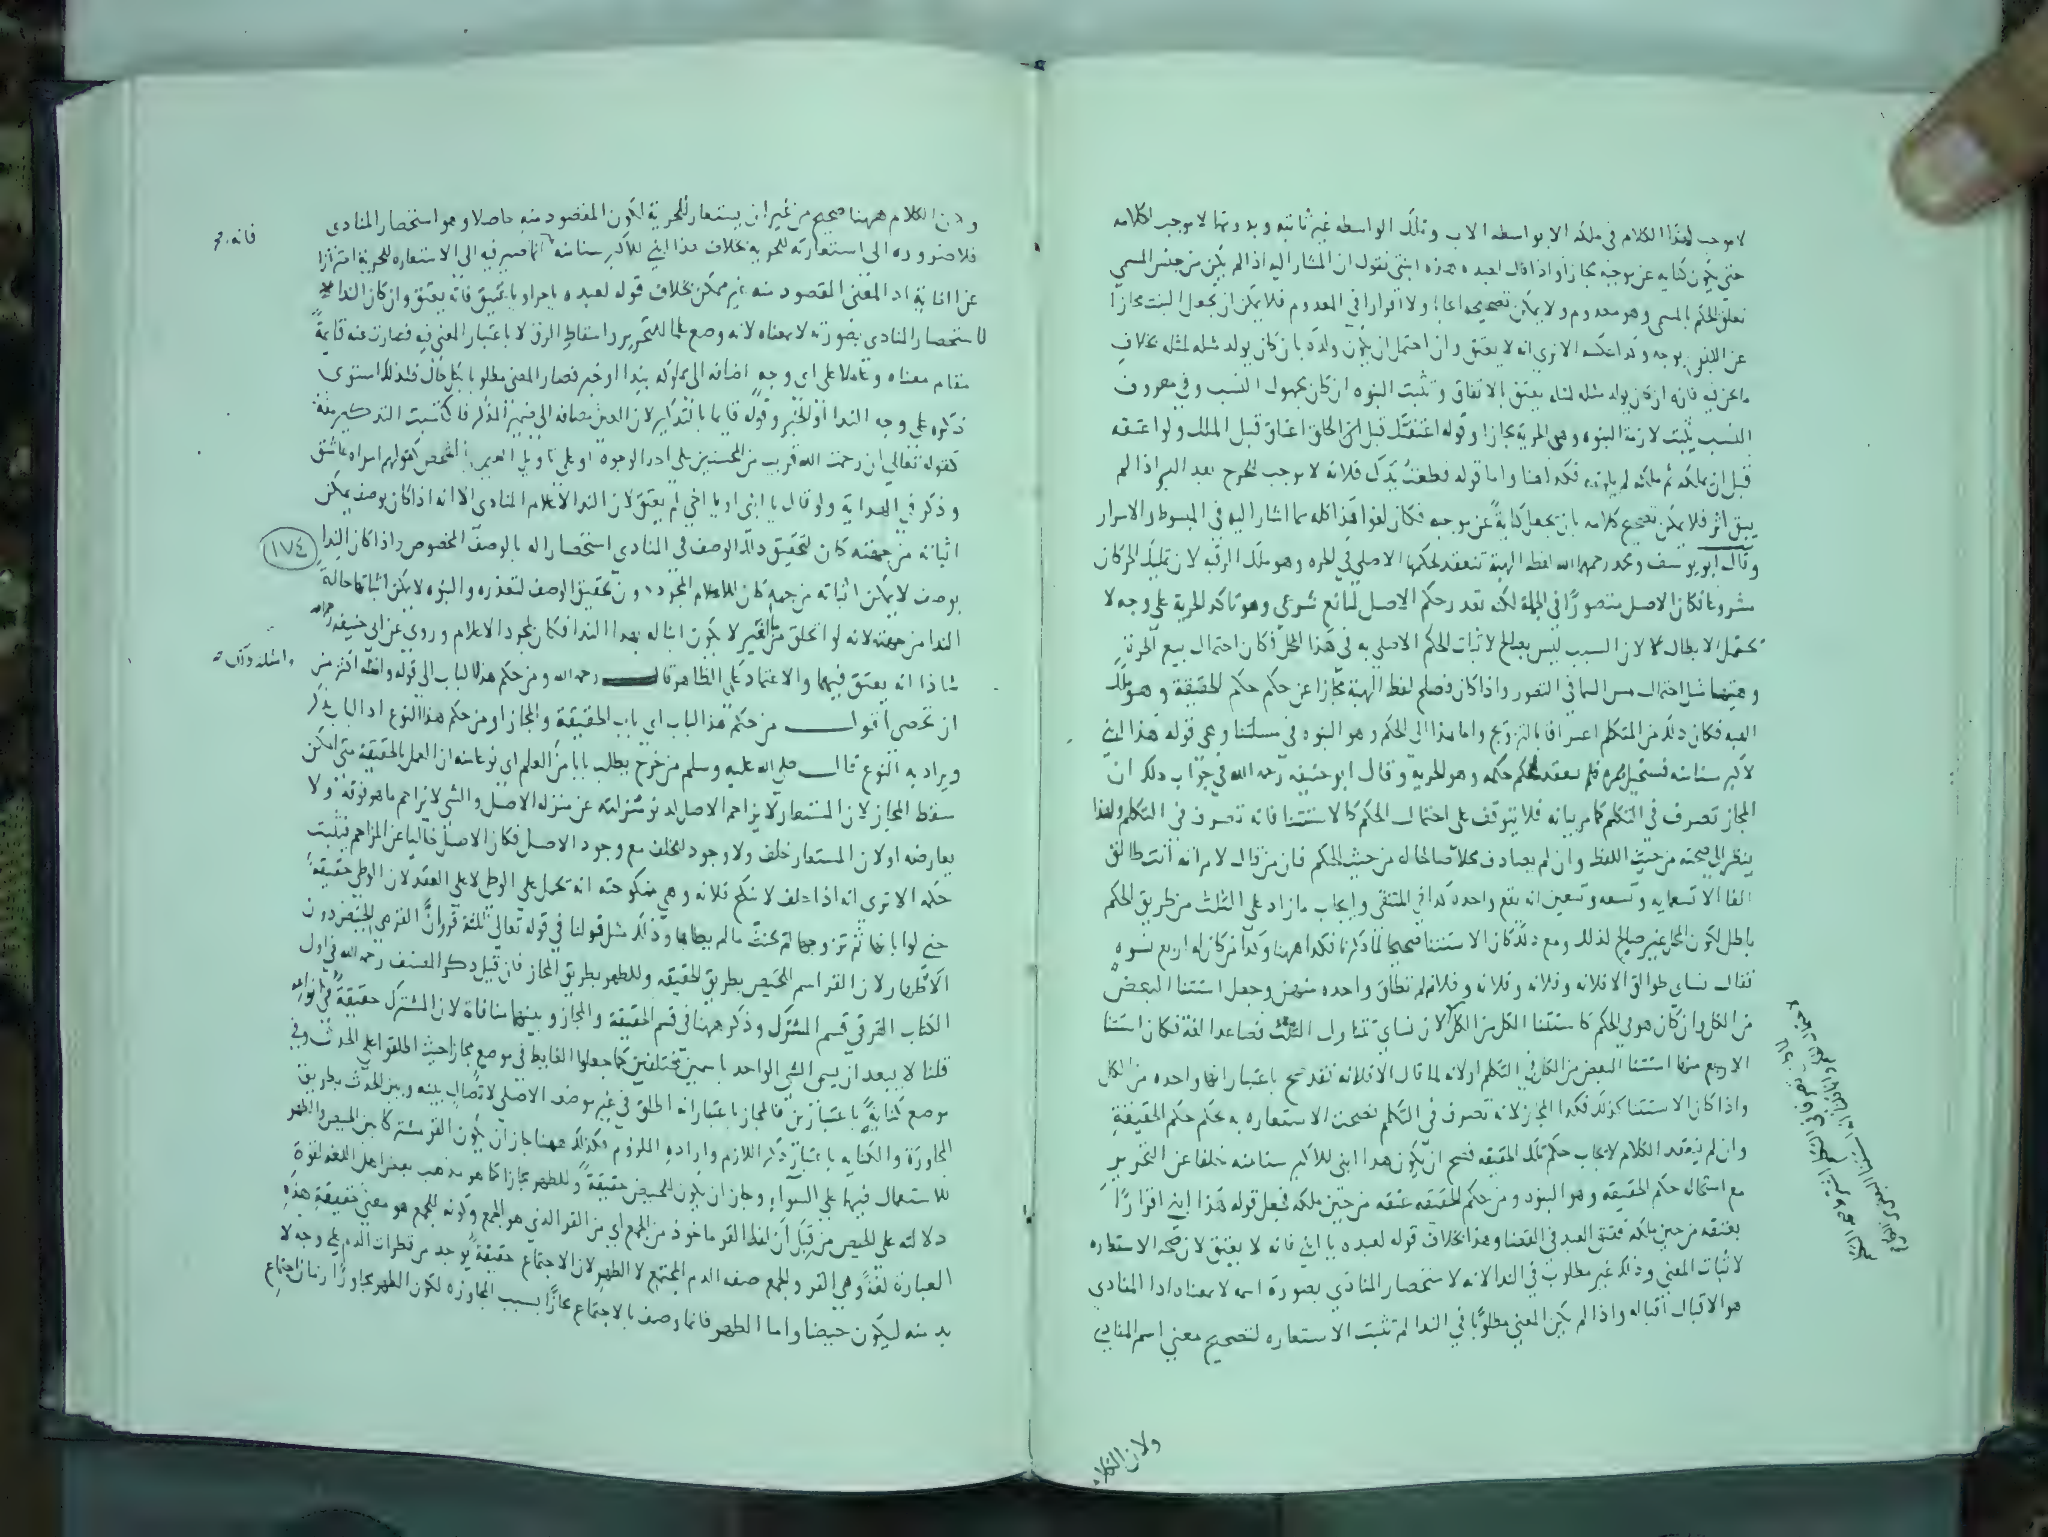 لا موجب لهذا الكلام في ملكه الا بواسطه الاب وتلك الواسطه غير ثابته وبدونها لا موجب لكلامه
حتى يكون كنايه عن موجبه مجازا واذا قال لعبده هذه ابنتي نقول ان المشار اليه اذا لم يكن من جنس المسمى
تعلق الحكم بالمسمى وهو معدوم ولا يمكن تصحيحه ايجابا ولا اقرارا في المعدوم فلا يمكن ان يجعل البنت مجازا
عن الابن بوجه وكذا عكسه الا ترى انه لا يعتق وان احتمل ان يكون ولده بان كان يولد مثله لمثله بخلاف
ما نحن فيه فانه ان كان يولد مثله لمثله يعتق بالاتفاق وتثبت البنوه ان كان مجهول النسب وفي معروف
النسب يثبت لازمة البنوه وهي الحرية مجازا وقوله اعتقتك قبل ان اخلق اعتاق قبل الملك ولو اعتقه
قبل ان يملكه ثم ملكه لم فكذا هنا واما قوله قطعتُ يدك فلانه لا موجب للجرح بعد البرء اذا لم
يبق اثر فلا يمكن تصحيح كلامه بان يجعل كنايةً عن موجبه فكان لغوا هذا كله مما اشار اليه في المبسوط والاسرار
وقال ابو يوسف ومحمد رحمهما الله لفظ الهبة تنعقد لحكمها الاصلي في الحره وهو ملك الرقبه لان تمليك الحر كان
مشروعا فكان الاصل متصورًا في الجملة لكنه تعذر حكم الاصل لمانع شرعي وهو تاكد الحرية على وجه لا
تحتمل الابطال لا لان السبب ليس بصالح لاثبات الحكم الاصلي به في هذا المحل فكان احتمال بيع الحرة
وهبتها مثل احتمال مس السما في التصور واذا كان فصلح لفظ الهبة مجازا عن حكم حكم الحقيقة وهو ملك
المتعه فكان ذلك من المتكلم اعترافا بالتزويج واما هذا الى الحكم وهو البنوه في مسلتنا وهي قوله هذا ابني
لاكبر سنا منه فستحيل بمره فلم ينعقد لحكم حكمه وهو الحرية وقال ابو حنيفه رحمه الله في جواب ذلك ان
المجاز تصرف في التكلم كما مر بيانه فلا يتوقف على احتمال الحكم كالاستثنا فانه تصرف في التكلم ولهذا
ينظر الى صحته من حيث اللفظ وان لم يصادف محلا صالحا له من حيث الحكم فان من قال لامراته انت طالق
الفا الا تسعمايه وتسعه وتسعين انه يقع واحده كذا في المنتقى وايجاب ما زاد على الثلث من طريق الحكم
باطل لكون المحل غير صالح لذلك ومع ذلك كان الاستثنا صحيحا لما ذكرنا فكذا ههنا وكذا من كان له اربع نسوه
فقال نساي طوالق الا فلانه وفلانه وفلانه وفلانه لم تطلق واحده منهن وجعل استثنا البعض
من الكل وان كان هو في الحكم كاستثنا الكل من الكل لان نساي تتناول الثلث فصاعدا لغة فكان استثنا
الاربع منها استثنا البعض من الكل في التكلم او لانه لما قال الا فلانه فقد صح باعتبار انها واحده من الكل
واذا كان الاستثنا كذلك فكذا المجاز لانه تصرف في التكلم فصحت الاستعاره به لحكم حكم الحقيقةِ
وان لم ينعقد الكلام لايجاب حكم تلك الحقيقه فصح ان يكون هذا ابني للاكبر سنا منه خلفا عن التحرير
مع استحاله حكم الحقيقه وهو البنوه ومن حكم الحقيقه عتقه من حين ملكه فجعل قوله هذا ابني اقرارًا
بعتقه من حين ملكه فعتق العبد في القضا وهذا بخلاف قوله لعبده يا ابني فانه لا يعتق لان صحه الاستعاره
لاثبات المعنى وذلك غير مطلوب في الندا لانه لاستحضار المنادى بصورة اسمه لا بمعناه اذا المنادى
هو الاقبال اقباله واذا لم يكن المعنى مطلوبًا في الندا لم تثبت الاستعاره لتصحيح معنى اسم المنادى
ولان الكلام
ولان الكلام ههنا صحيح من غير ان يستعار للحرية لكون المقصود منه حاصلا وهو استحضار المنادى
فلا ضروره الى استعارته للحريه بخلاف هذا ابني للاكبر سنا منه انما صير فيه الى الاستعاره للحرية احترازا
فانه
عن الغايه اذ المعنى المقصود منه غير ممكن بخلاف قوله لعبده يا حر او يا عتيق فانه يعتق وان كان الندا
لاستحضار المنادى بصورته لا بمعناه لانه وضع علما للتحرير واسقاط الرق لا باعتبار المعنى فيه فصارت عينه قايمةً
مقام معناه وعاملا على اي وجهٍ اضافه الى مملوكه بندا او خبر فصار المعنى مطلوبا بكل حال فلذلك استوى
ذكره على وجه الندا او الخبر وقوله قايما بالتذكير لان العين مضافه الى ضمير المذكر فاكتسبت التذكير منه
كقوله تعالى ان رحمت الله قريب من المحسنين على احد الوجوه او على تاويل العين بالشخص كقولهم امراه عاشق
وذكر في الهداية ولو قال يا ابني او يا اخي لم يعتق لان الندا لاعلام المنادى الا انه اذا كان بوصف يمكن
اثباته من جهته كان لتحقيق ذلك الوصف في المنادى استحضارا له بالوصف المخصوص واذا كان الندا
١٧٤
بوصف لا يمكن اثباته من جهته كان للاعلام المجرد دون تحقيق الوصف لتعذره والبنوه لا يمكن اثباتها حالة
الندا من جهته لانه لو انخلق من ما الغير لا يكون ابنا له بهذا الندا فكان لمجرد الاعلام وروي عن ابي حنيفه رحمه الله
شاذا انه يعتق فيهما والاعتماد على الظاهر قال رحمه الله ومن حكم هذا الباب الى قوله وامثله اكثر من
ان تحصى اقول من حكم هذا الباب اي باب الحقيقة والمجاز او من حكم هذا النوع اذ الباب يذكر
ويراد به النوع قال صلى الله عليه وسلم من خرج يطلب بابا من العلم اي نوعا منه ان العمل بالحقيقة متى امكن
سقط المجاز لان المستعار لا يزاحم الاصل لدنو منزلته عن منزله الاصل والشي لا يزاحم ما هو فوقه ولا
يعارضه او لان المستعار خلف ولا وجود للخلف مع وجود الاصل فكان الاصل خاليا عن المزاحم فيثبت
حكمه الا ترى انه اذا حلف لا ينكح فلانه وهي منكوحته انه تحمل على الوطي لا على العقد لان الوطي حقيقةً
حتى لو ابانها ثم تزوجها لم يحنث ما لم يطاها وذلك مثل قولنا في قوله تعالى ثلثة قروء ان القرء هي الحيض دون
الاطهار لان القرء اسم للحيض بطريق الحقيقه وللطهر بطريق المجاز فان قيل ذكر المصنف رحمه الله في اول
الكتاب القرء في قسم المشترك وذكر ههنا في قسم الحقيقة والمجاز وبينهما منافاة لان المشترك حقيقةً في انواعه
قلنا لا يبعد ان يسمى الشي الواحد باسمين مختلفين كما جعلوا الغايط في موضع مجازا حيث اطلقوا على الحدث وفي
موضع كنايةً باعتبارين فالمجاز باعتبار انه اطلق في غير موضعه الاصلي لاتصالٍ بينه وبين الحدث بطريق
المجاورة والكنايه باعتبار ذكر اللازم وارادهِ الملزوم فكذلك ههنا جاز ان يكون القرء مشتركا بين الحيض والطهر
للاستعمال فيهما على السواءِ وجاز ان يكون للحيض حقيقةً وللطهر مجازا كما هو مذهب بعض اهل اللغه لقوة
دلالته على الحيض من قِبَل ان لفظ القرء ماخوذ من الجمع اي من القرء الذي هو الجمع وكونه للجمع هو معنى حقيقةِ هذهِ
العبارة لغةً وهي القرء والجمع صفه الدم المجتمع لا الطهر لان الاجتماع حقيقةً يوجد من قطرات الدم على وجه لا
بد منه ليكون حيضا واما الطهر فانما وصف بالاجتماع مجازًا بسبب المجاورة لكون الطهر مجاورًا زمان اجتماعِ